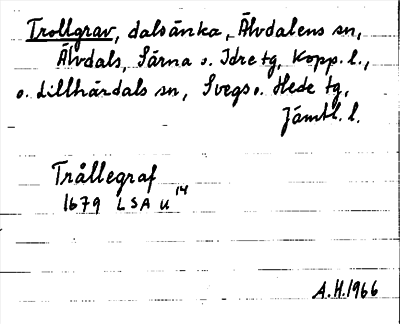 Trollgrav, dalsänka, Älvdalens sn,
Älvdals, Särna o. Idre tg, Kopp. l.,
o. Lillhärdals sn, Svegs o. Hede tg,
Jämtl. l.
Trållegraf
1679 LSA U 14
A.H. 1966